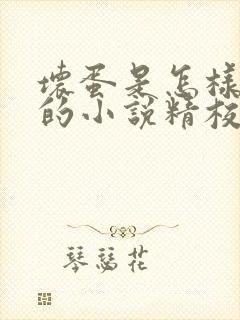 壞蛋是怎樣
的小說精校
琴瑟花